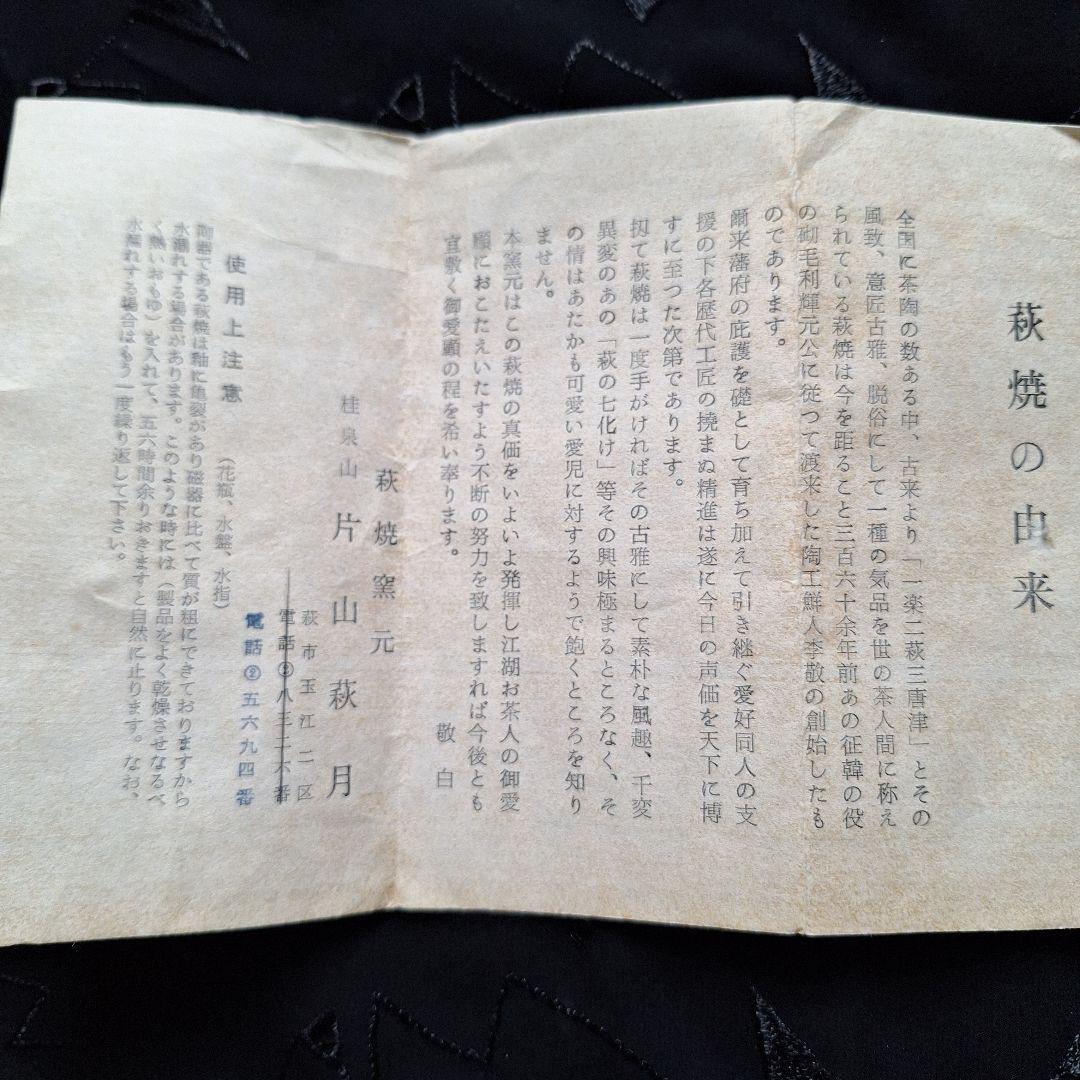 萩焼の由来
全国に茶陶の数ある中、古来より「一楽二萩三唐津」とその
風致、意匠古雅、脱俗にして一種の気品を世の茶人間に称え
られている萩焼は今を距ること三百六十余年前あの征韓の役
の砌毛利輝元公に従つて渡来した陶工鮮人李敬の創始したも
のであります。
爾来藩府の庇護を礎として育ち加えて引き継ぐ愛好同人の支
援の下各歴代工匠の撓まぬ精進は遂に今日の声価を天下に博
すに至つた次第であります。
扨て萩焼は一度手がければその古雅にして素朴な風趣、千変
異変のあの「萩の七化け」等その興味極まるところなく、そ
の情はあたかも可愛い愛児に対するようで飽くところを知り
ません。
本窯元はこの萩焼の真価をいよいよ発揮し江湖お茶人の御愛
顧におこたえいたすよう不断の努力を致しますれば今後とも
宜敷く御愛顧の程を希い奉ります。
敬白
萩焼窯元
桂泉山 片山萩月
萩市玉江二区
電話②八三二六番
電話②五六九四番
使用上注意 (花瓶、水盤、水指)
陶器である萩焼は釉に亀裂があり磁器に比べて質が粗にできておりますから
水漏れする場合があります。このような時には(製品をよく乾燥させなるべ
く熱いおもゆ)を入れて、五六時間余りおきますと自然に止ります。なお、
水漏れする場合はもう一度繰り返して下さい。